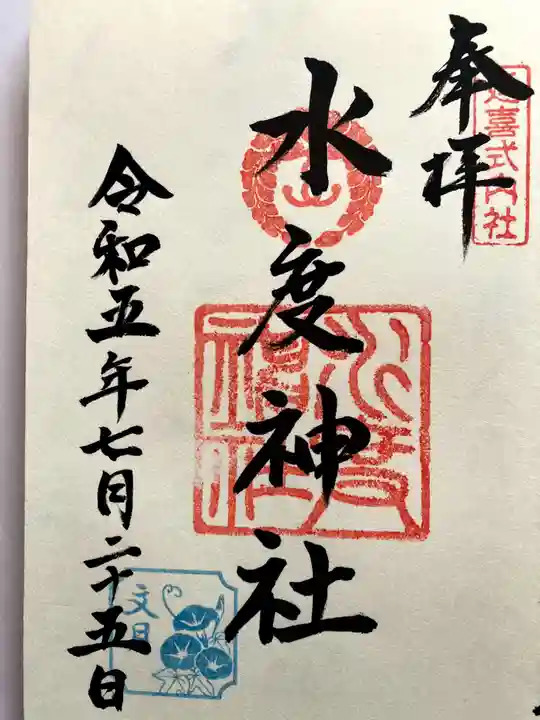 奉拝
延喜式内社
水度神社
水度神社
令和五年七月二十五日
文日